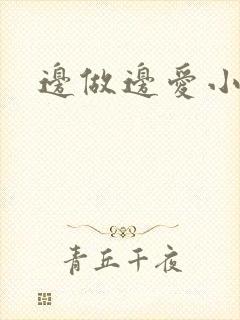 邊做邊愛小
青丘千夜